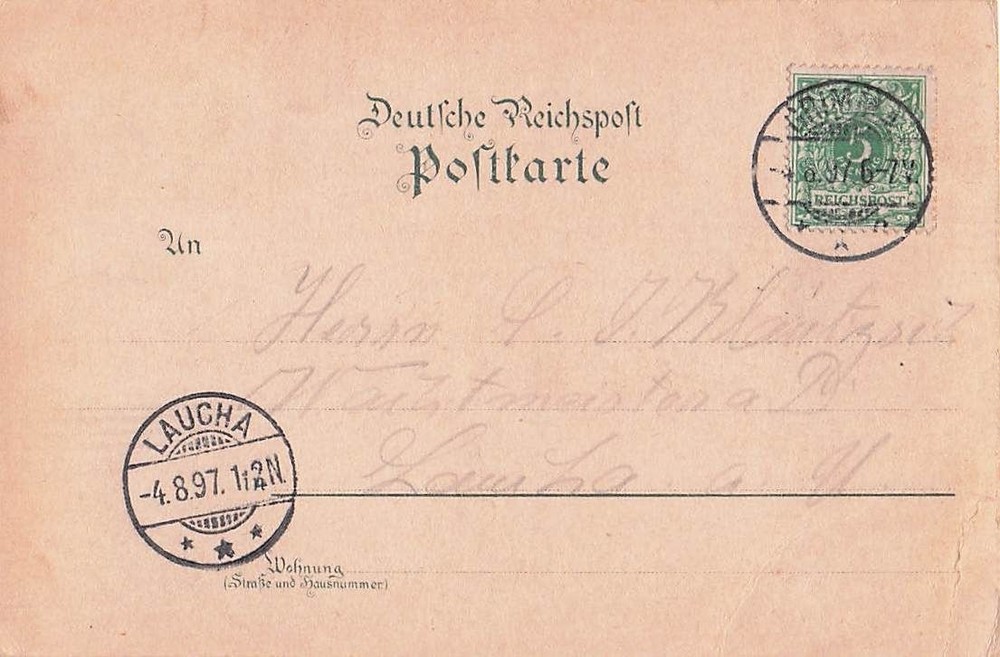 Deutsche Reichspost
Postkarte
5
REICHSPOST
6-7V.
An
Herrn C. J.
Wachtmeister a. D.
Laucha a. U.
LAUCHA
-4.8.97. 1-2N.
Wohnung
(Straße und Hausnummer)